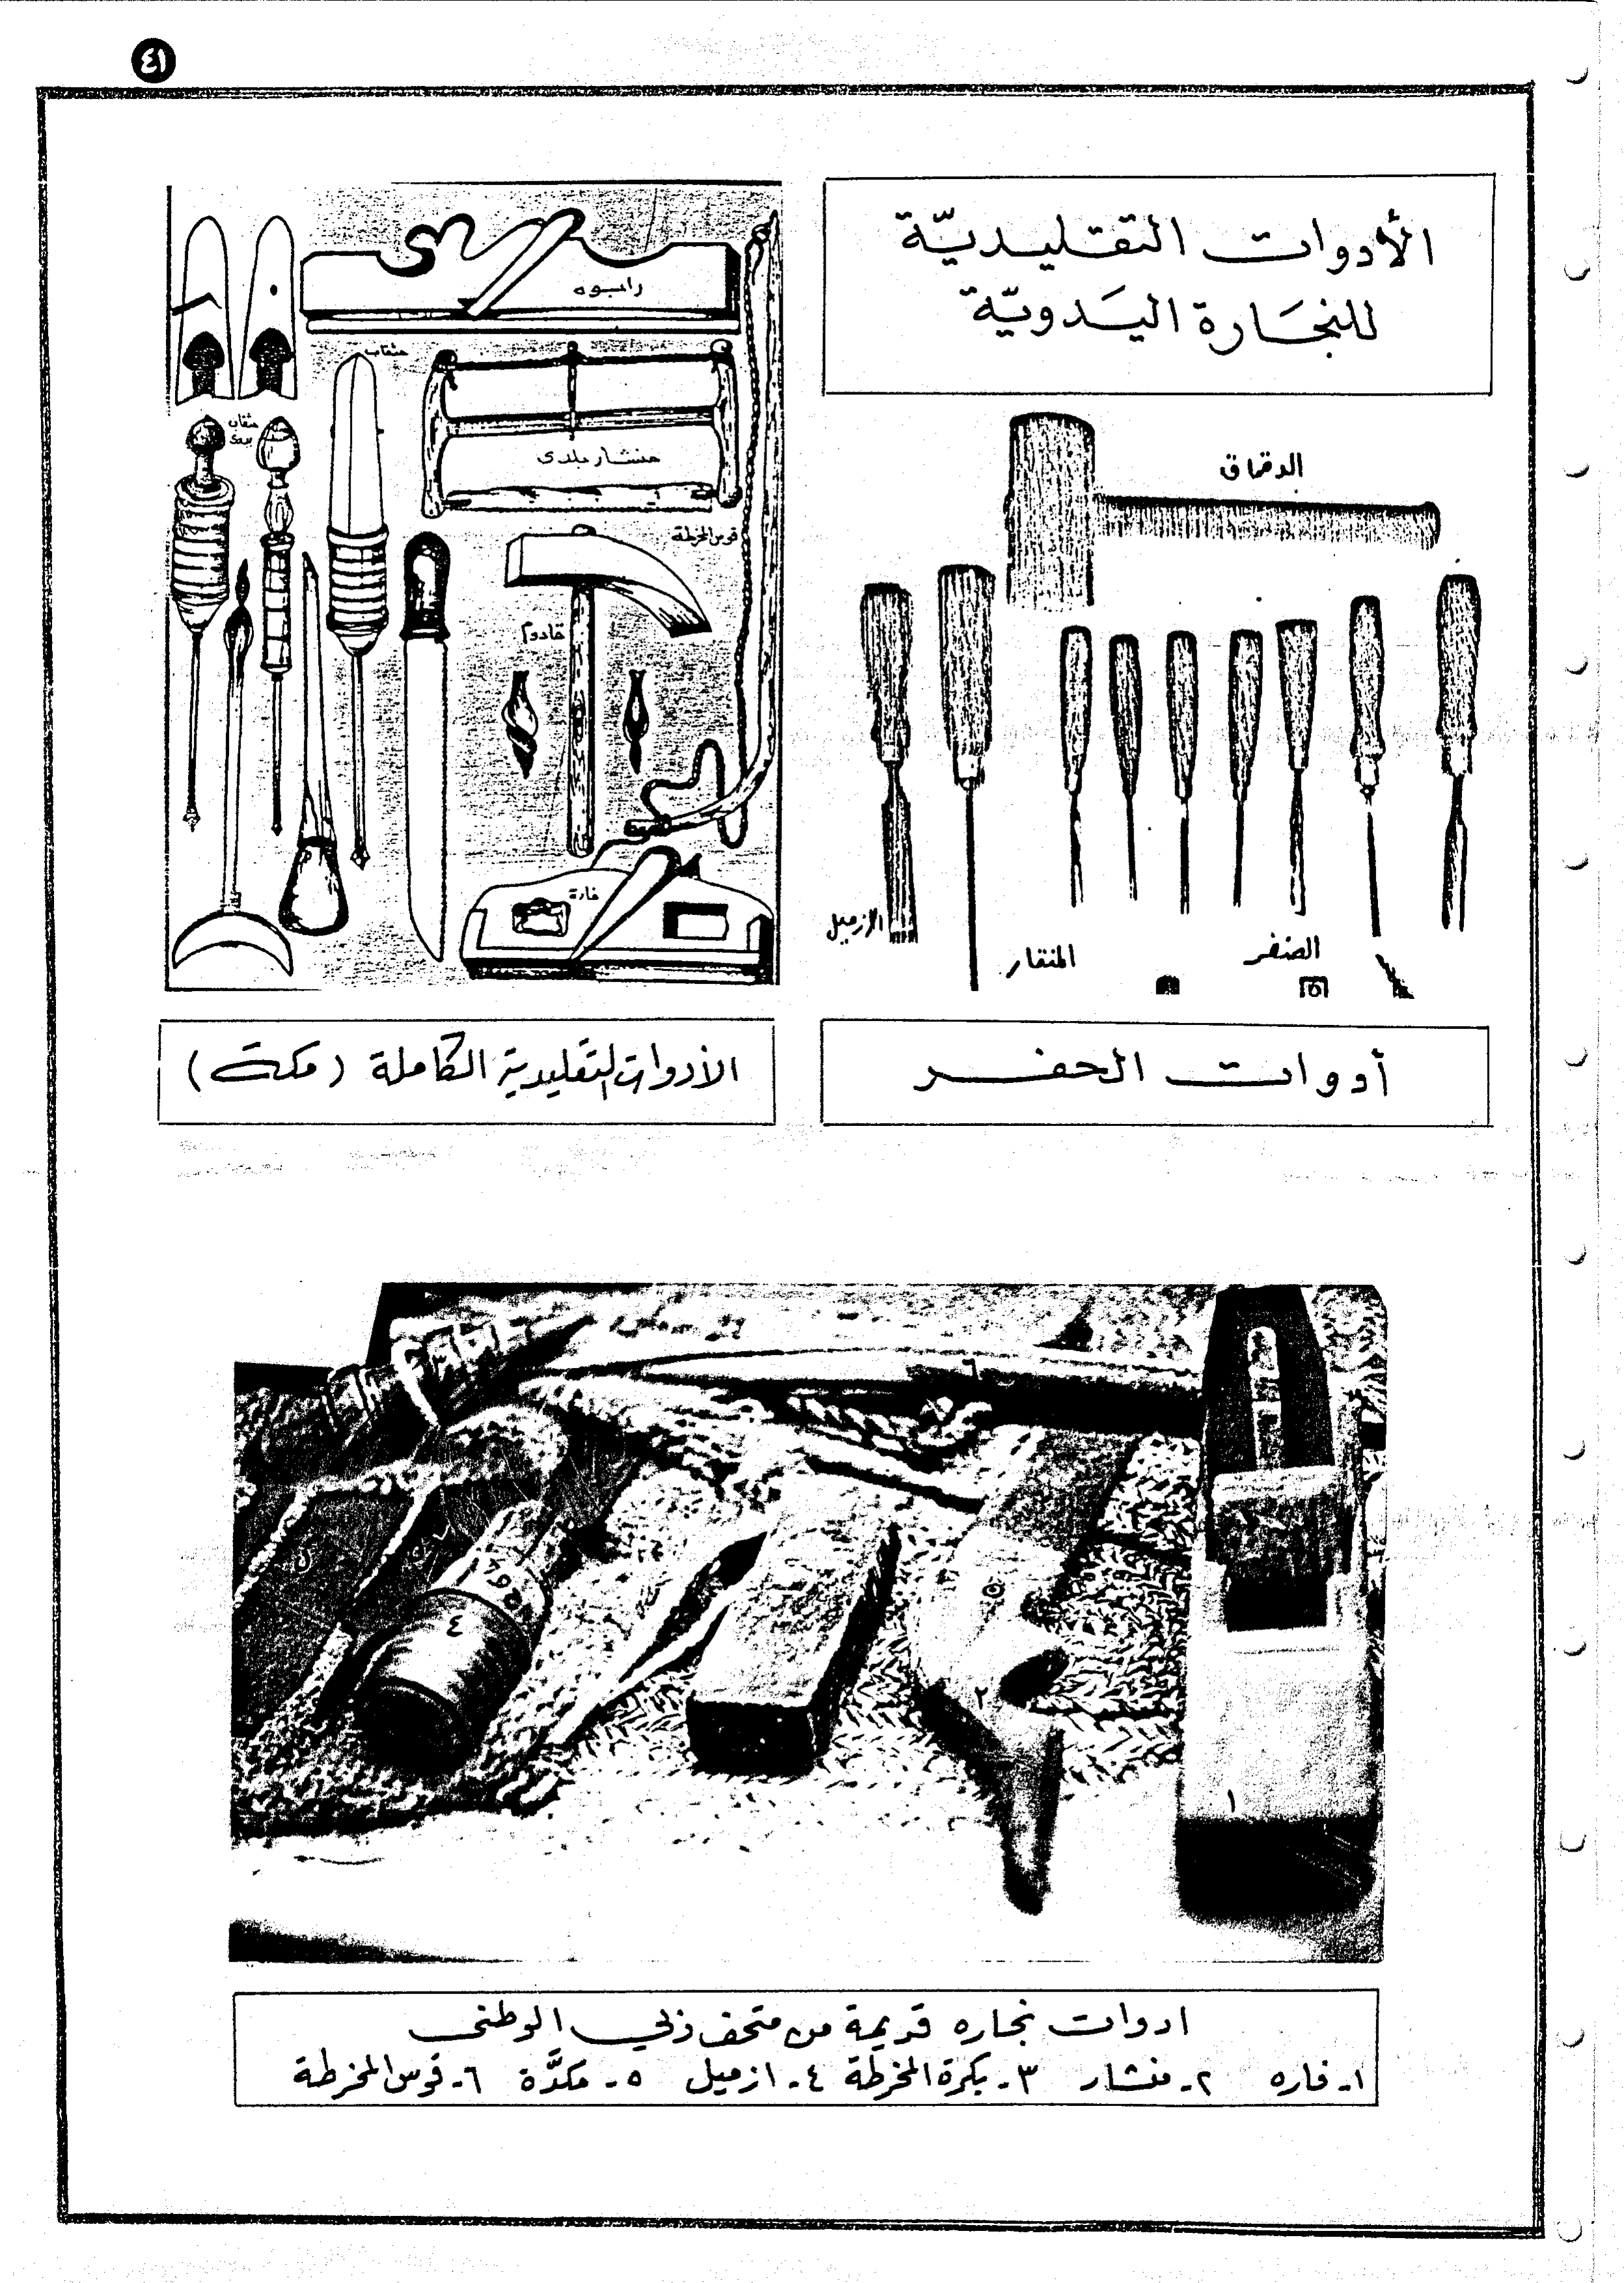 ٤١
الأدوات التقليديّة
للنجَارة اليَدويّة
الدقماق
الازميل
المنقار
الصنفر
أدوات الحفر
رابوه
مثقاب
مثقاب
منشار بلدى
قوس المخرطة
قادوم
فارة
الأدوات التقليدية الكاملة (مكة)
٦
٥
٤
٢
١
ادوات نجاره قديمة من متحف زلي الوطنى
١- فاره ٢- منشار ٣- بكرة المخرطة ٤- ازميل ٥- مكدَّة ٦- قوس المخرطة